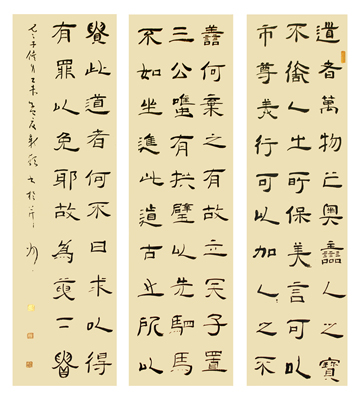 道者萬物之奧善人之寶
不善人之所保美言可以
市尊美行可以加人之不
善何棄之有故立天子置
三公雖有拱璧以先駟馬
不如坐進此道古之所以
貴此道者何不曰求以得
有罪以免耶故為天下貴
老子乙未孟夏